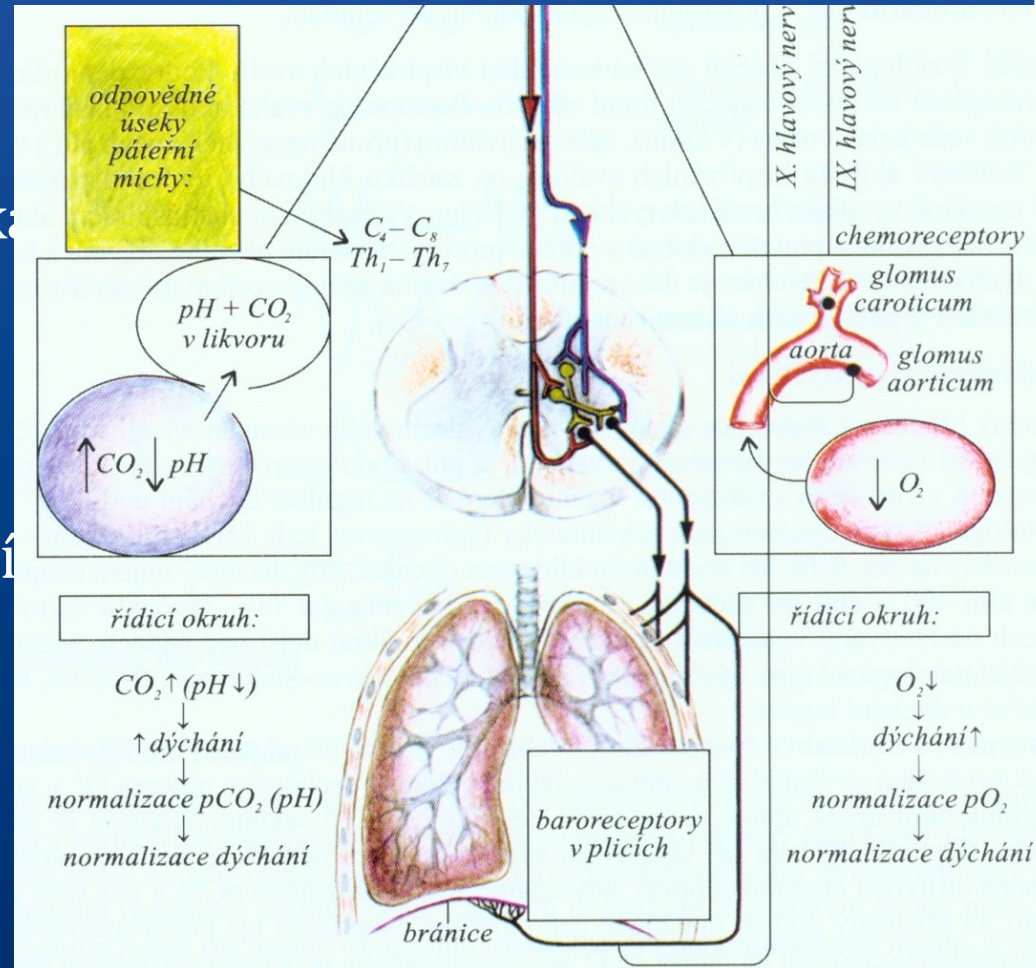 odpovědné
úseky
páterní
míchy:
C₅ – C₈
Th₁ – Th₇
pH + CO₂
v likvoru
CO₂ pH
řídicí okruh:
CO₂↑ (pH↓)
↓
↑dýchání
↓
normalizace pCO₂ (pH)
↓
normalizace dýchání
XI hlavový nerv
IX. hlavový nerv
chemoreceptory
glomus
caroticum
aorta
glomus
aorticum
↓ O₂
řídicí okruh:
O₂↓
↓
dýchání↑
↓
normalizace pO₂
↓
normalizace dýchání
baroreceptory
v plicích
bránice
ka
í